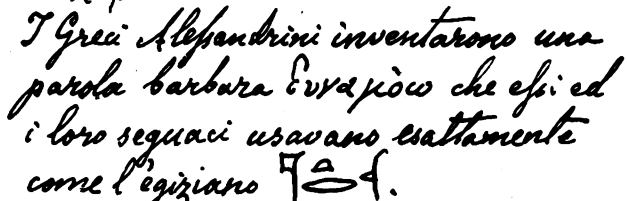 I Greci Alessandrini inventarono una
parola barbara
che essi ed
i loro seguaci usavano esattamente
come l'egiziano